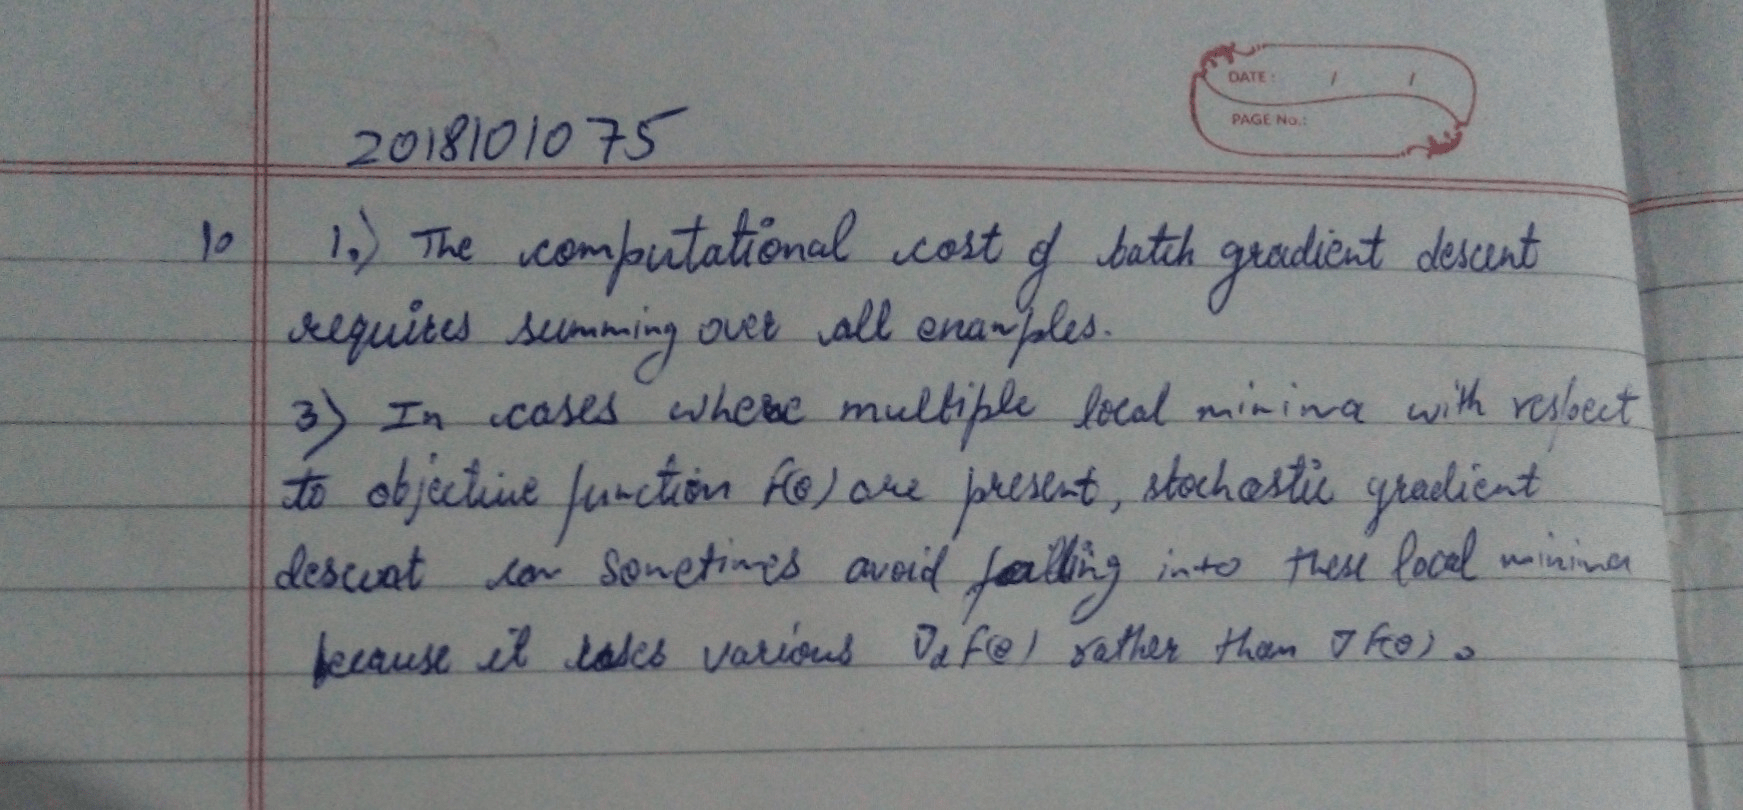 DATE: / /
PAGE No.:
2018101075
10 1.) The computational cost of batch gradient descent
requires summing over all enamples.
3) In cases where multiple local minima with respect
to objective function F(θ) are present, stochastic gradient
descent can sometimes avoid falling into these local minima
because it uses various ∇d F(θ) rather than ∇F(θ).